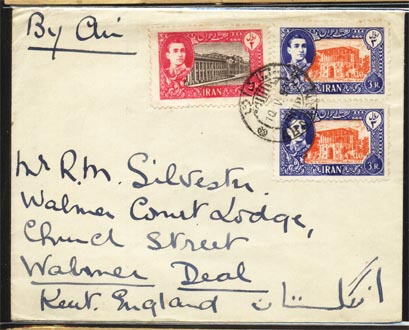 By Air
IRAN
IRAN
IRAN
3R
3R
Mr R.M. Silvester
Walmer Court Lodge,
Church Street
Walmer Deal
Kent. England انگلستان